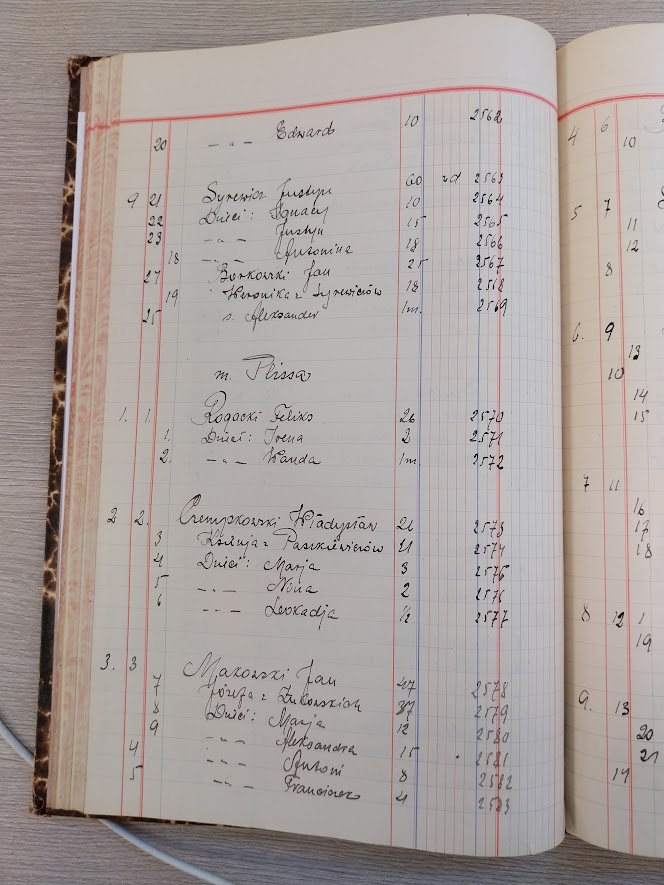 20 — „ — Edward 10 2562
9 21 Syrewicz Justyn 60 zd 2563
22 Dzieci: Ignacy 10 2564
23 — „ — Justyn 15 2565
18 — „ — Antonina 18 2566
Borkowski Jan 25 2567
19 Weronika z Syrewiczów 18 2568
25 s. Aleksander 1m. 2569
m. Plissa
1. 1. Rogacki Feliks 26 2570
1. Dzieci: Irena 2 2571
2. — „ — Wanda 1m 2572
2 2. Władysław 2573
3 z Paszkiewiczów 21 2574
4 Dzieci: Marja 3 2575
5 — „ — Nina 2 2576
6 — „ — Leokadja ½ 2577
3. 3 Makowski Jan 47 2578
7 Józefa z Żukowskich 37 2579
8 Dzieci: Marja 12 2580
9 — „ — Aleksandra 15 2581
4 — „ — Antoni 8 2582
5 — „ — Franciszek 4 2583
4 6
10
5 7
11
12
8
6. 9
13
10
14
15
7 11
16
17
18
8 12 1
19
9. 13
20
21
14